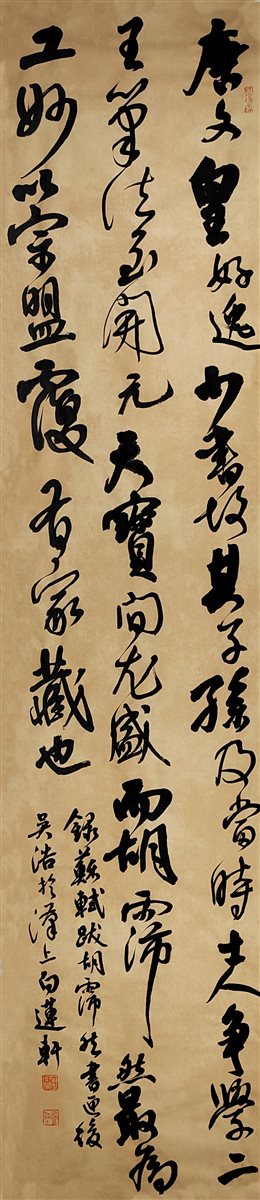 唐文皇好逸少書故其子孫及當時士人爭學二
王筆法至開元天寶間尤盛而胡霈然最為
工妙以宗盟覆有家藏也
錄蘇軾跋胡霈然書匣後
吳浩於漢上白蓮軒